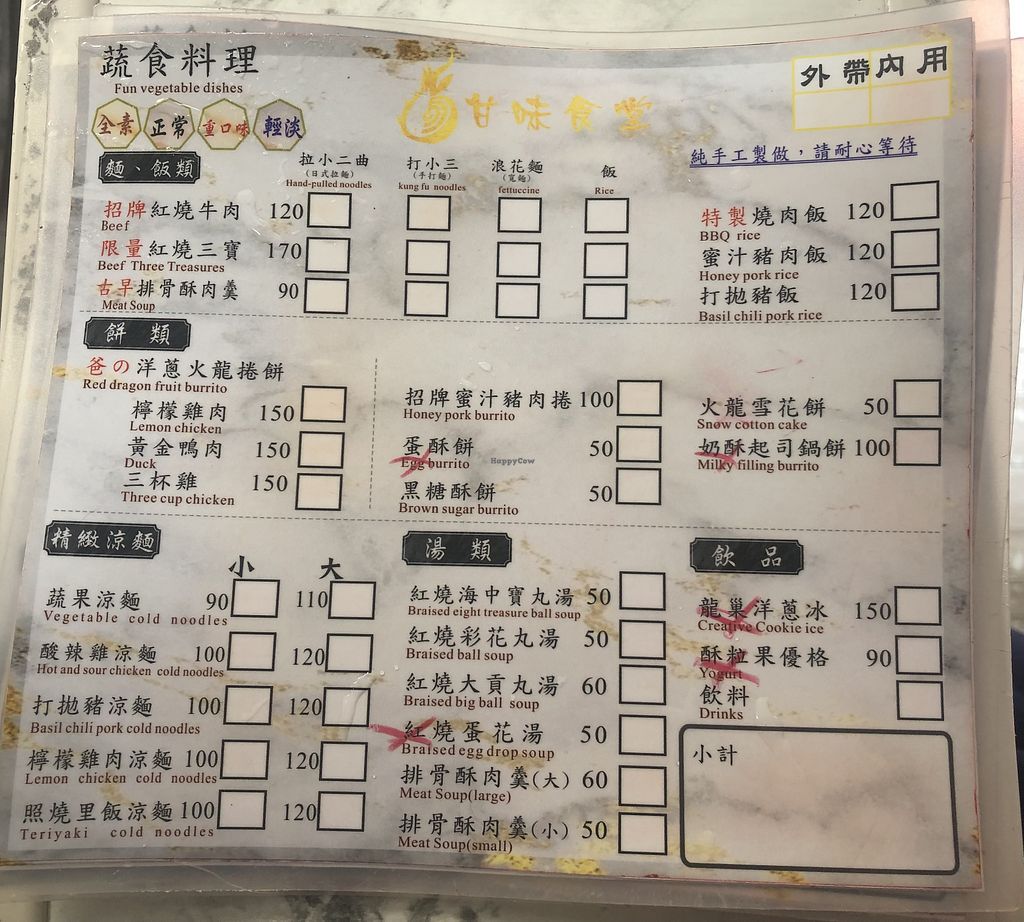 蔬食料理
Fun vegetable dishes
甘味食堂
外帶 內用
全素 正常 重口味 輕淡
純手工製做，請耐心等待
麵、飯類
拉小二曲 打小三 浪花麵 飯
(日式拉麵) (手打麵) (寬麵)
Hand-pulled noodles kung fu noodles fettuccine Rice
招牌紅燒牛肉 120
Beef
限量紅燒三寶 170
Beef Three Treasures
古早排骨酥肉羹 90
Meat Soup
特製燒肉飯 120
BBQ rice
蜜汁豬肉飯 120
Honey pork rice
打拋豬飯 120
Basil chili pork rice
餅類
爸の洋蔥火龍捲餅
Red dragon fruit burrito
檸檬雞肉 150
Lemon chicken
黃金鴨肉 150
Duck
三杯雞 150
Three cup chicken
招牌蜜汁豬肉捲 100
Honey pork burrito
蛋酥餅 50
Egg burrito
HappyCow
黑糖酥餅 50
Brown sugar burrito
火龍雪花餅 50
Snow cotton cake
奶酥起司鍋餅 100
Milky filling burrito
精緻涼麵
小 大
蔬果涼麵 90 110
Vegetable cold noodles
酸辣雞涼麵 100 120
Hot and sour chicken cold noodles
打拋豬涼麵 100 120
Basil chili pork cold noodles
檸檬雞肉涼麵 100 120
Lemon chicken cold noodles
照燒里飯涼麵 100 120
Teriyaki cold noodles
湯類
紅燒海中寶丸湯 50
Braised eight treasure ball soup
紅燒彩花丸湯 50
Braised ball soup
紅燒大貢丸湯 60
Braised big ball soup
紅燒蛋花湯 50
Braised egg drop soup
排骨酥肉羹(大) 60
Meat Soup(large)
排骨酥肉羹(小) 50
Meat Soup(small)
飲品
龍巢洋蔥冰 150
Creative Cookie ice
酥粒果優格 90
Yogurt
飲料
Drinks
小計